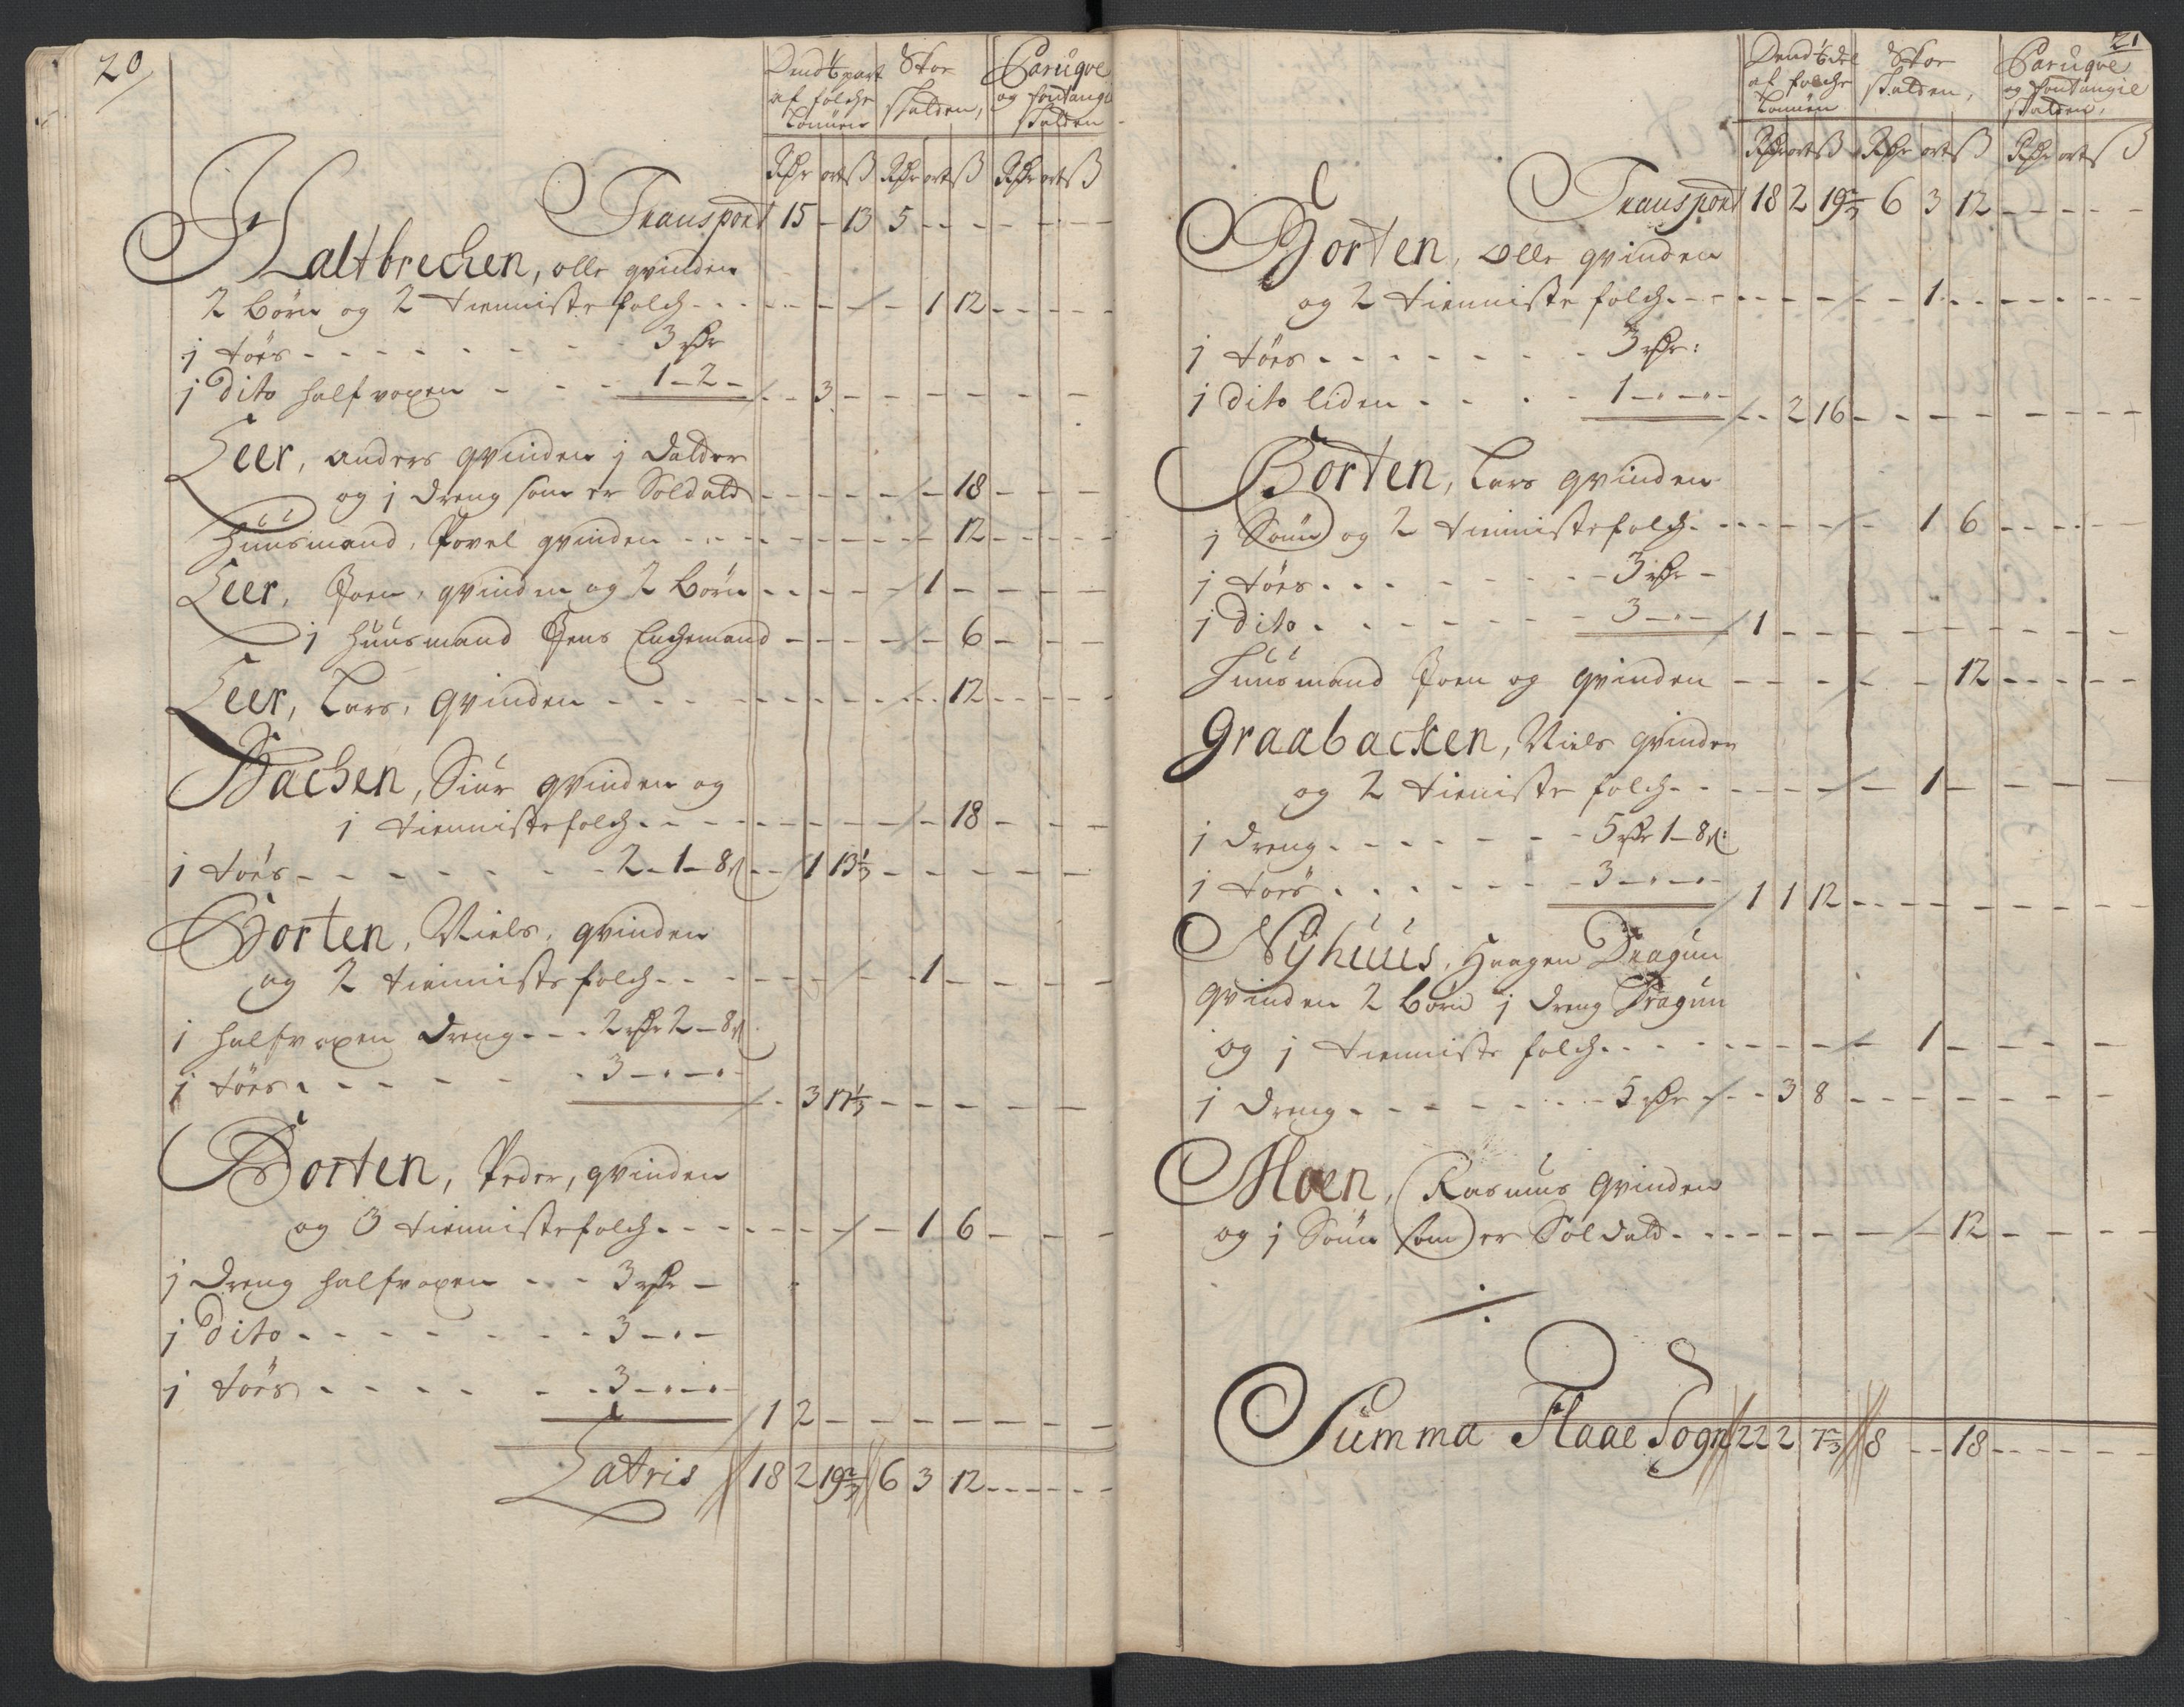 20
Dend 1/6 part af folche Lønnen
Skoe skatten,
Paruque og fontangie skatten
Rdr ort ß Rdr ort ß Rdr ort ß
Transport 15 - 13 5 - - - - -
Kaltbrechen, olle qvinden
2 børn og 2 tienniste folch - - - 1 12 - - -
j töes - - - 3 rdr
j dito halfvoxen - - - 1-2- - 3 - - - - - -
Leer, anders qvinden j datter
og j dreng som er Soldatt - - - - - 18 - - -
Huusmand, Povel qvinden - - - - - 12 - - -
Leer, Joen, qvinden og 2 børn - - - - 1 - - - -
j huusmand Jens Enchemand - - - - - 6 - - -
Leer, Lars, qvinden - - - - - 12 - - -
Bachen, Siur qvinden og
j tiennistefolch - - - - - 18 - - -
j töes - - - 2-1-8ß - 1 13 1/3 - - - - - -
Borten, Niels, qvinden
og 2 tienniste folch - - - - 1 - - - -
j halfvoxen dreng - - - 2 rdr 2-8ß
j töes - - - 3 - - - 3 17 1/3 - - - - - -
Borten, Peder, qvinden
og 3 tiennistefolch - - - - 1 6 - - -
j dreng halfvoxen - - 3 rdr -
j dito - - - 3 - -
j töes - - - 3 - - 1 2 - - - - - - -
Latris 18 2 19 2/3 6 3 12 - - -
21
Dend 1/6 del af folche Lonnen
Skoe skatten,
Paruque og fontangie skatten,
Rdr ort ß Rdr ort ß Rdr ort ß
Transport 18 2 19 2/3 6 3 12 - - -
Borten, olle qvinden
og 2 tienniste folch - - - - 1 - - - -
j töes - - - 3 rdr:
j dito liden - - - 1 - - - 2 16 - - - - - -
Borten, Lars qvinden
j Sönn og 2 tiennistefolch - - - - 1 6 - - -
j töes - - - 3 rdr -
j dito - - - 3 - - 1 - - - - - - - -
Huusmand Joen og qvinden - - - - - 12 - - -
Graabacken, Niels qvinden
og 2 tieniste folch - - - - 1 - - - -
j dreng - - - 5 rdr 1-8ß:
j töes - - - 3 - - 1 1 12 - - - - - -
Nÿhuus, Haagen Dragun
qvinden 2 børn j dreng Dragun
og j tienniste folch - - - - 1 - - - -
j dreng - - - 5 rdr - - 3 8 - - - - - -
Moen, Rasmus qvinden
og j Sönn som er Soldatt - - - - - 12 - - -
Summa Flaae Sogn 22 2 7 2/3 8 - 18 - - -